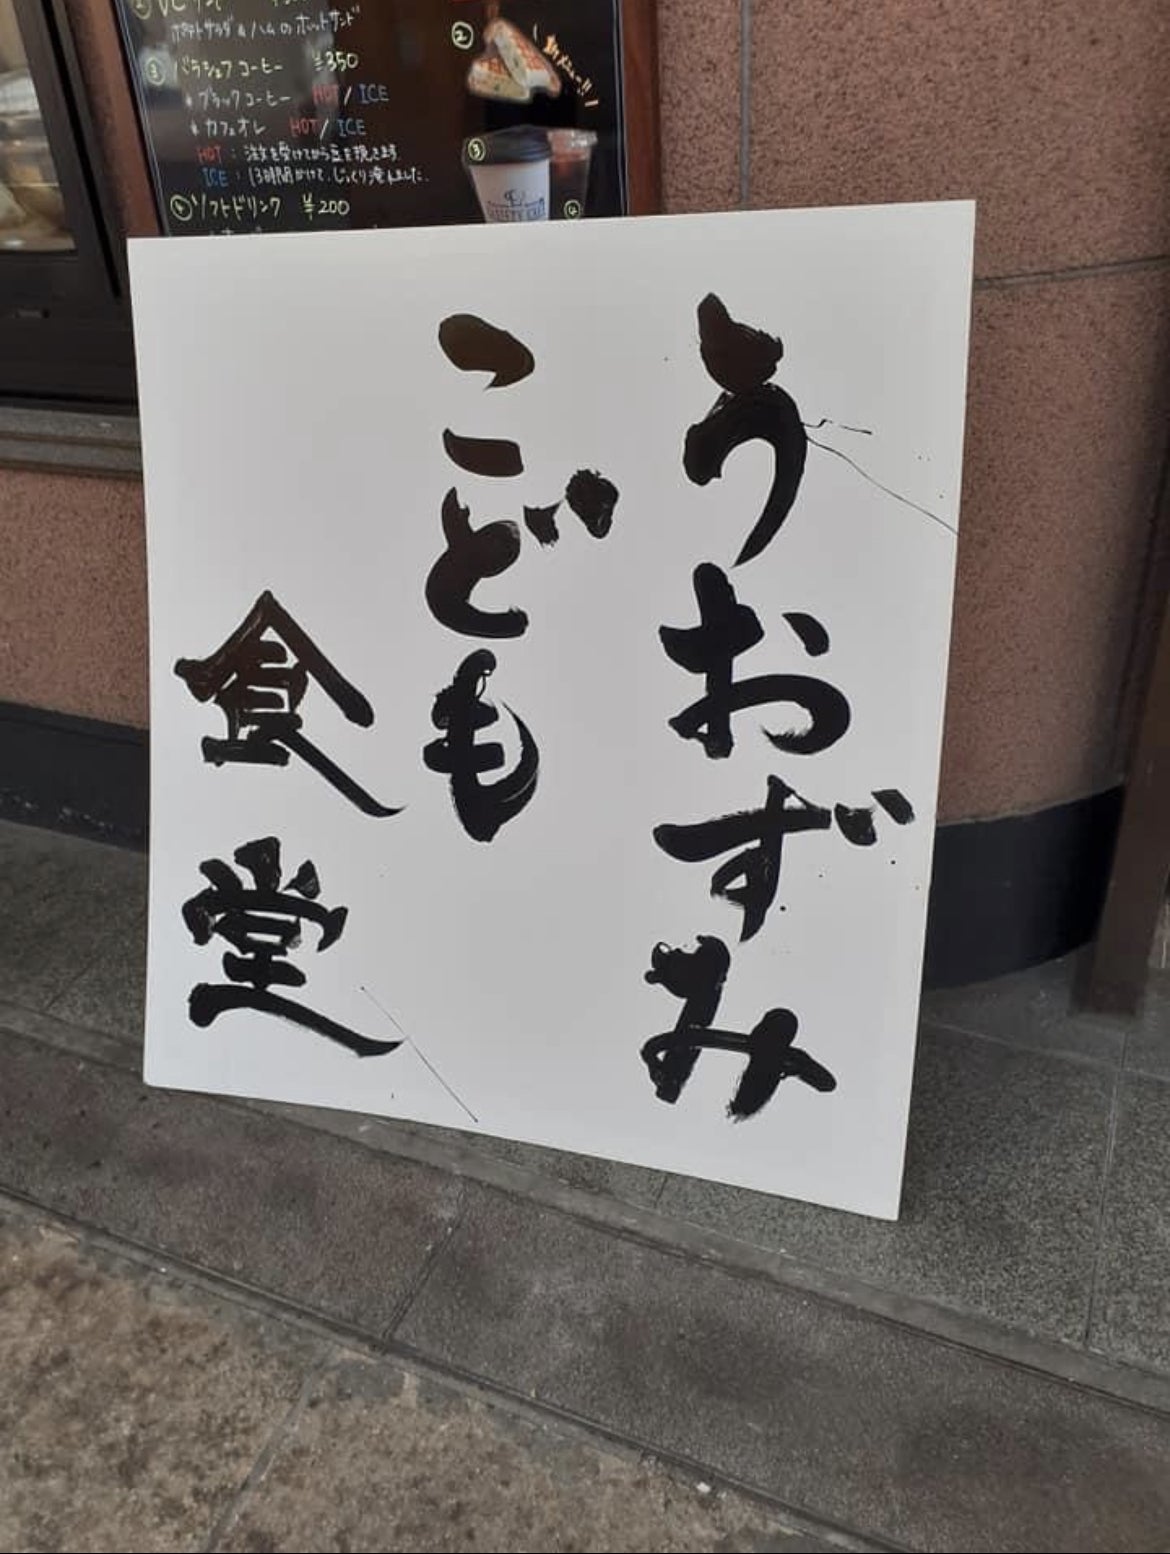 ポテトサラダ&ハムのホットサンド
③バラシェフコーヒー ¥350
ブラックコーヒー HOT / ICE
カフェオレ HOT / ICE
HOT：注文を受けてから豆を挽きます
ICE：13時間かけて、じっくり淹れました。
④ソフトドリンク ¥200
②
③
④
うおずみ
こども
食堂